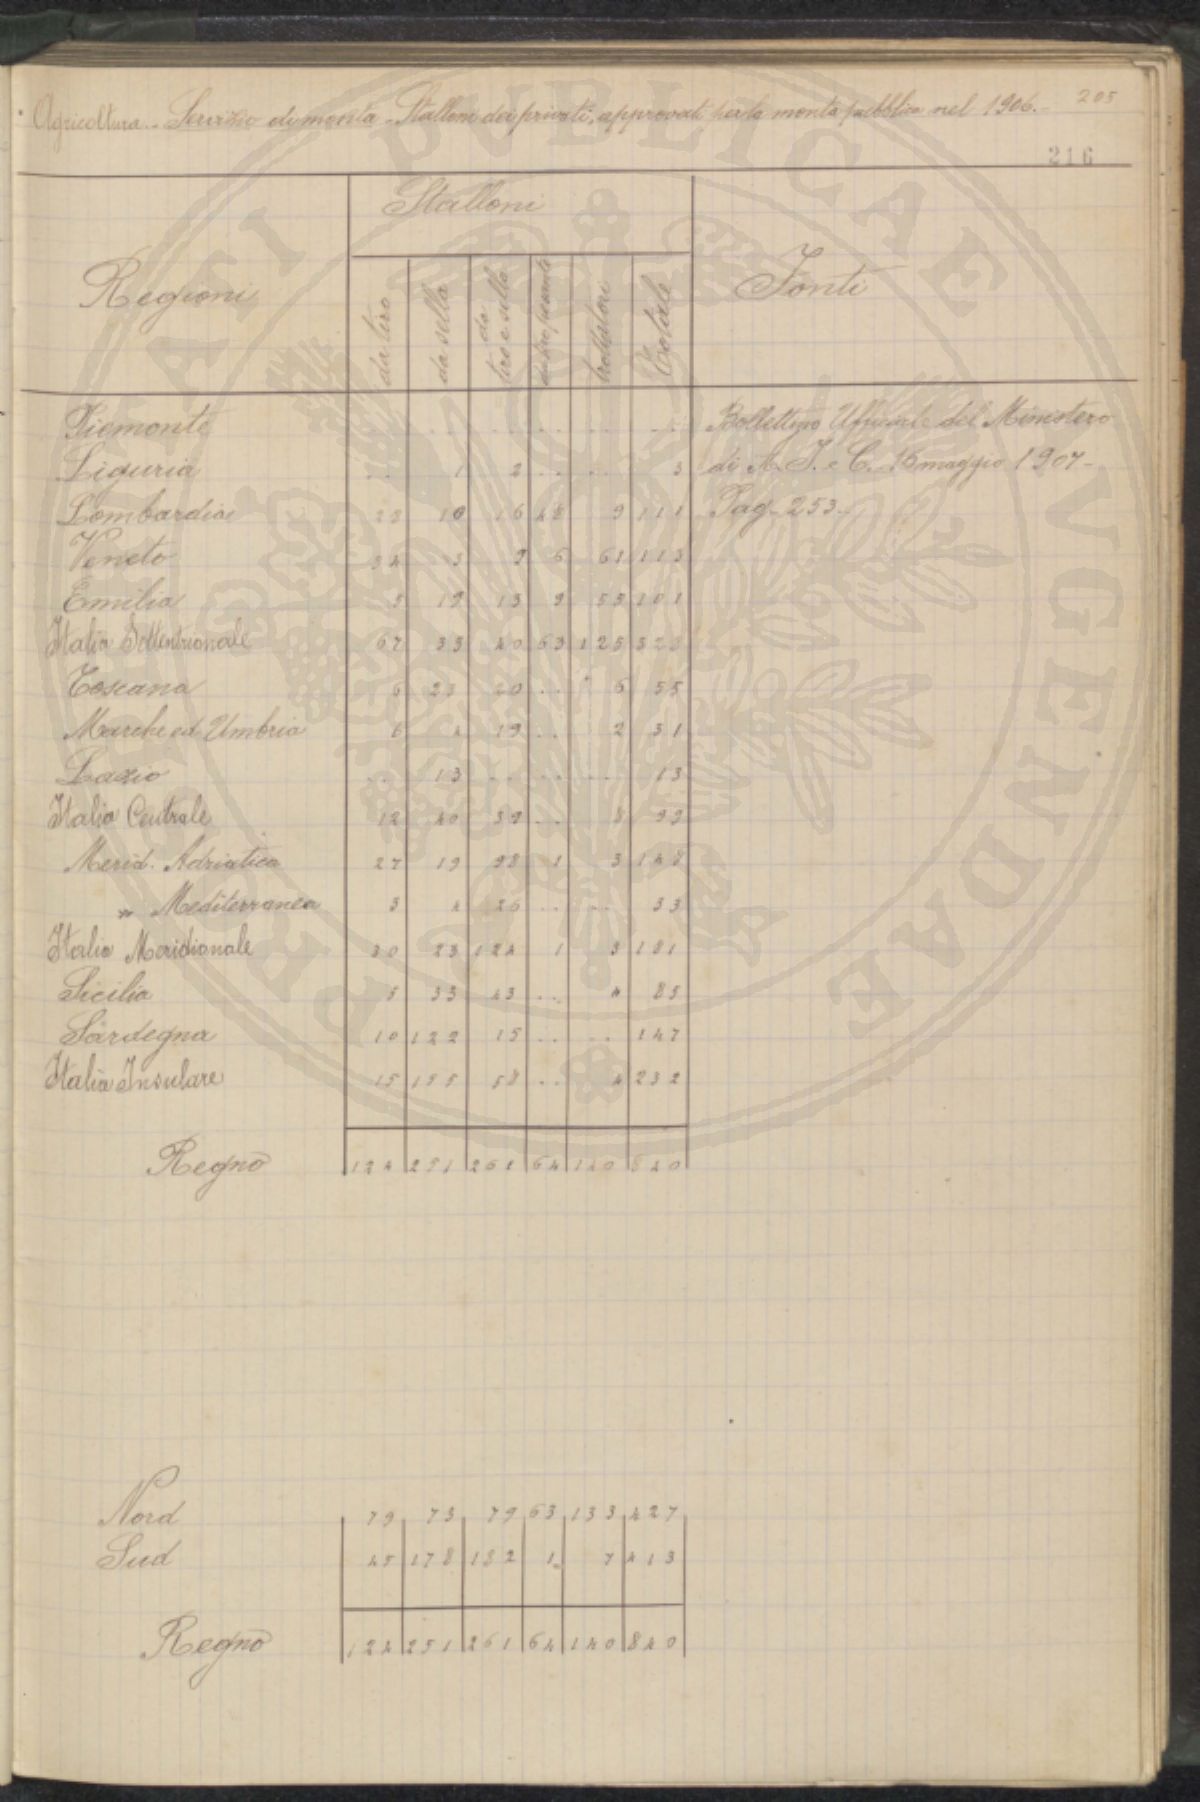 Agricoltura - Servizio di monta - Stalloni dei privati, approvati per la monta pubblica nel 1906. -
205
216
Regioni
Stalloni
Fonti
da tiro
da sella
da tiro e sella
da tiro pesante
trottatori
Totale
Piemonte .. .. .. .. .. ..
Liguria .. 1 2 .. .. 3
Lombardia 28 10 16 48 9 111
Veneto 34 3 9 6 61 113
Emilia 5 19 13 9 55 101
Italia Settentrionale 67 33 40 63 125 328
Toscana 6 23 20 .. 6 55
Marche ed Umbria 6 4 19 .. 2 31
Lazio .. 13 .. .. .. 13
Italia Centrale 12 40 39 .. 8 99
Merid. Adriatica 27 19 98 1 3 148
" Mediterranea 3 4 26 .. .. 33
Italia Meridionale 30 23 124 1 3 181
Sicilia 5 33 43 .. 4 85
Sardegna 10 122 15 .. .. 147
Italia Insulare 15 155 58 .. 4 232
Regno 124 251 261 64 140 840
Bollettino Ufficiale del Ministero
di A. I. e C. - 16 maggio 1907 -
Pag. 253 -
Nord 79 73 79 63 133 427
Sud 45 178 182 1 7 413
Regno 124 251 261 64 140 840
PUBLICAE
IVGENDAE